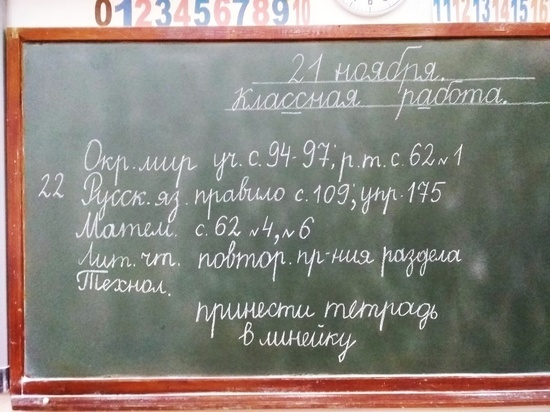 012345678910
11 12 13 14 15 16
21 ноября.
классная работа.
Окр. мир уч. с. 94-97; р. т. с. 62 №1
22 Русск. яз. правило с. 109; упр. 175
Матем. с. 62 №4, №6
Лит. чт. повтор. пр-ния раздела
Технол.
принести тетрадь
в линейку